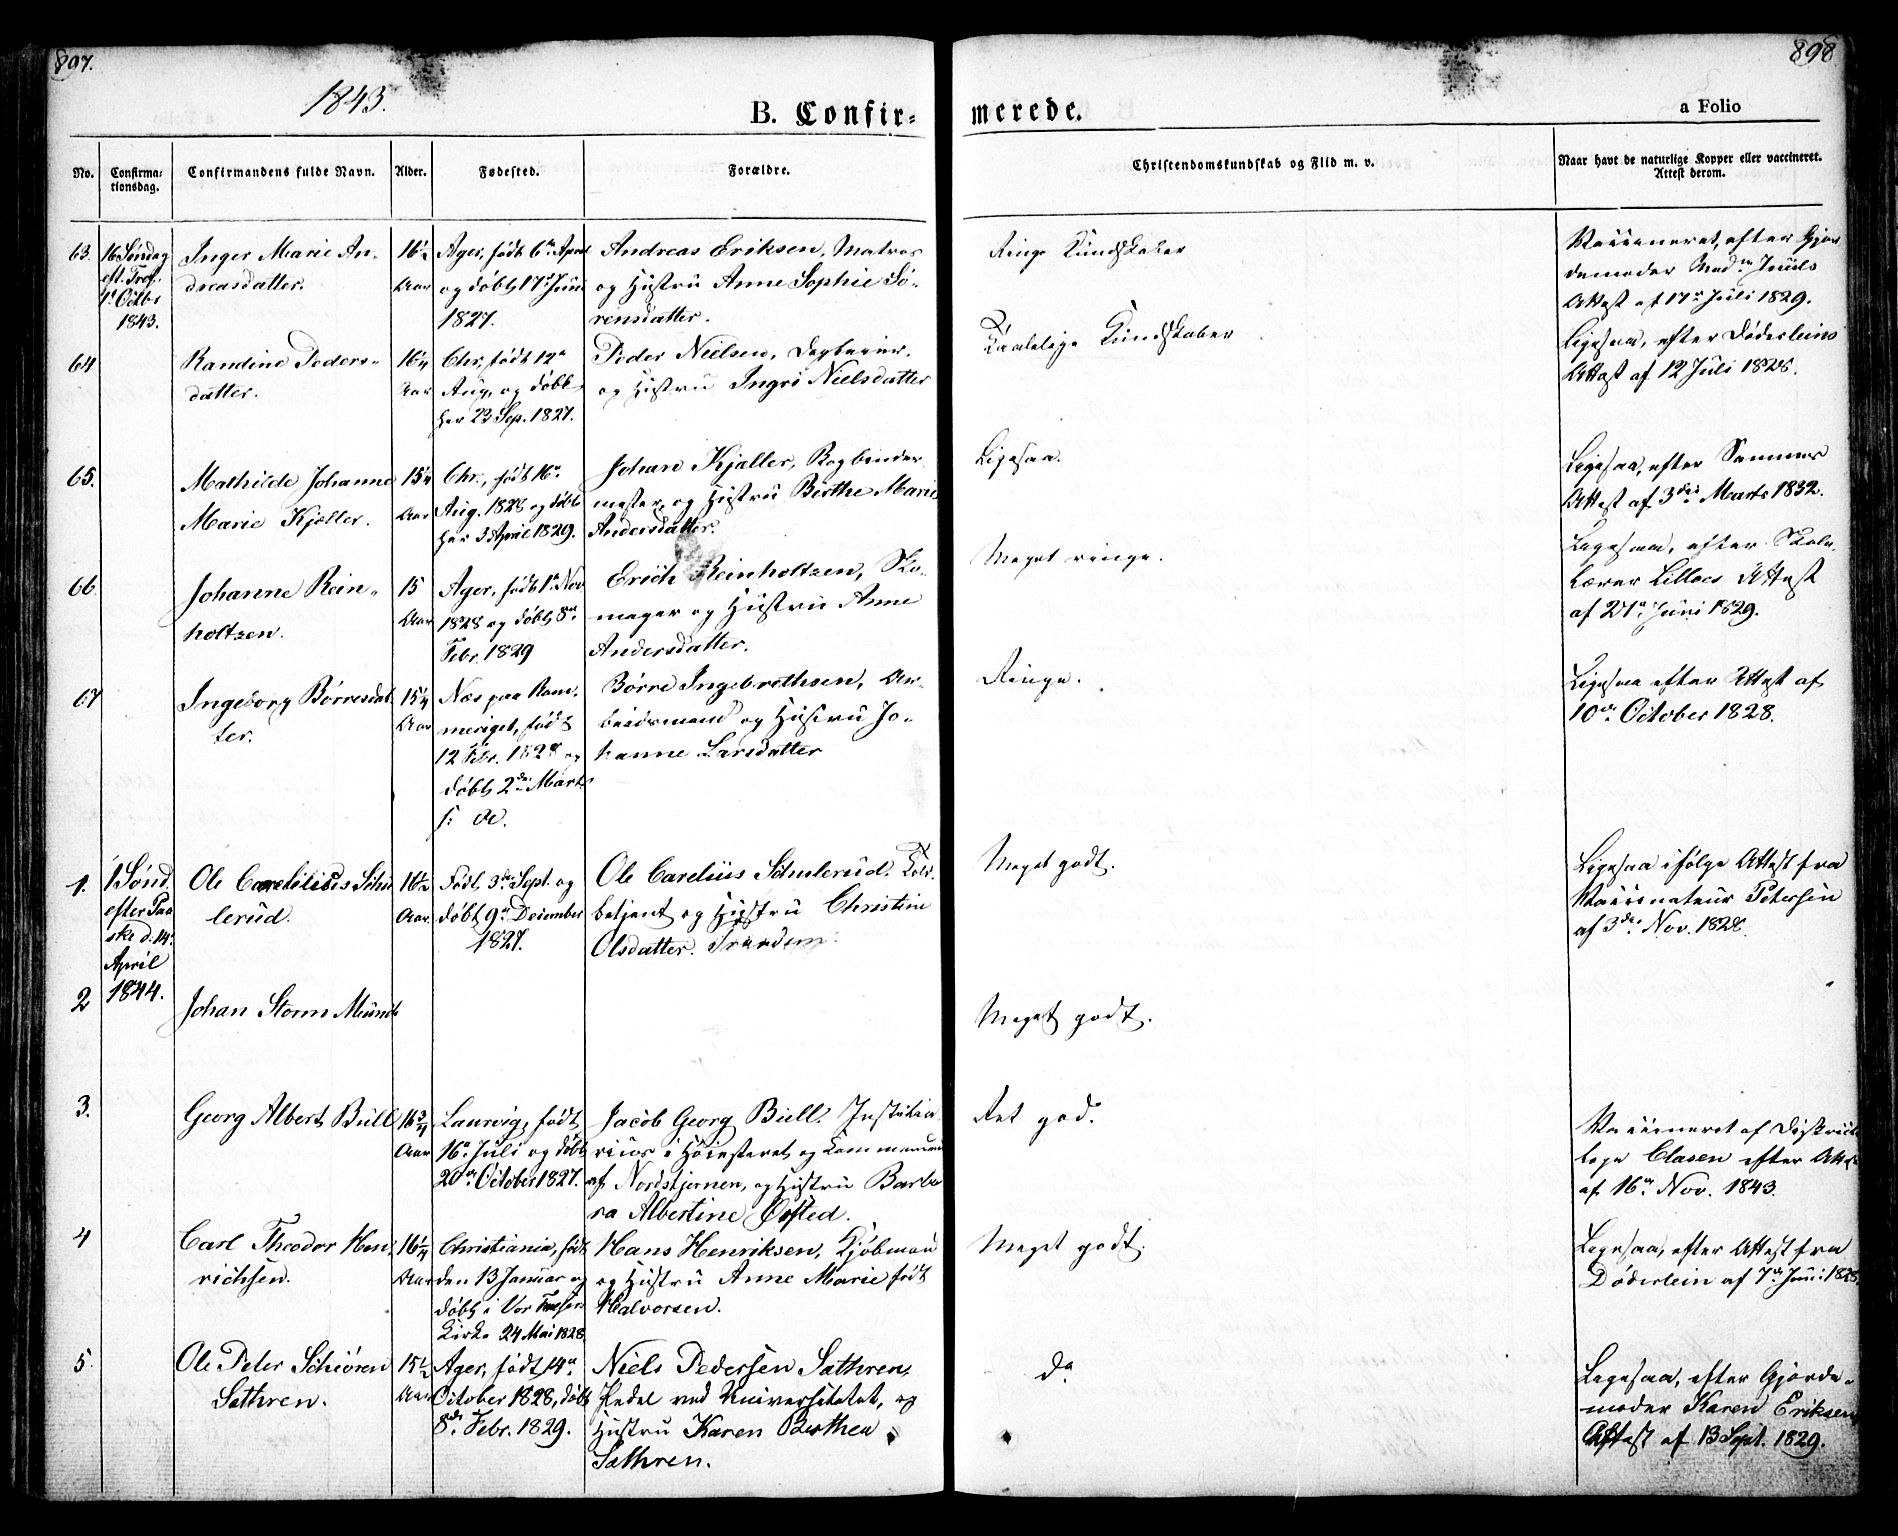 897.
898
1843.
B. Confir-
merede.
a Folio
No.
Confirma-
tionsdag.
Confirmandens fulde Navn.
Alder.
Fødested.
Forældre.
Christendomskundskab og Flid m. v.
Naar havt de naturlige Kopper eller vaccineret.
Attest derom.
63.
16 Søndag
eft. Tref.
1. Octbr
1843.
Inger Marie An-
dreasdatter.
16½
Aar
Ager, født 6te April
og døbt 17de Juni
1827.
Andreas Eriksen, Matros
og Hustru Anne Sophie Sö-
rensdatter.
Ringe Kundskaber
Vaccineret, efter Gjor
demoder Mad.m Juuls
Attest af 17de Juli 1829.
64
Randine Peders-
datter.
16¼
Aar
Chr, født 12te
Aug, og døbt
her 23 Sep. 1827.
Peder Nielsen, Dagleier,
og Hustru Ingri Nielsdatter
Taalelige Kundskaber
Ligesaa, efter Døderleins
Attest af 12 Juli 1828.
65.
Mathilde Johanne
Marie Kjøller.
15¼
Aar
Chr., født 16de
Aug. 1828 og døbt
her 3 April 1829.
Johan Kjøller, Bogbinder
mester, og Hustru Birthe Marie
Andersdatter.
Ligesaa.
Ligesaa, efter Sommers
Attest af 3die Marts 1832.
66
Johanne Rein-
holtzen.
15
Aar
Ager, født 1te Nov
1828 og døbt 8de
Febr. 1829
Erich Reinholtzen, Sko-
mager og Hustru Anne
Andersdatter.
Meget ringe.
Ligesaa, efter Skole
Lærer Lilloes Attest
af 21de Juni 1829.
67
Ingeborg Børresdat
ter.
15¼
Aar
Næs paa Rom-
meriget, født
12 Febr. 1828 og
døbt 2den Marts
s. A.
Børre Ingebrethsen, Ar-
beidsmand og Hustru Jo-
hanne Larsdatter
Ringe.
Ligesaa efter Attest af
10de October 1828.
1.
1 Sønd.
efter Paa
ske d. 14.
April
1844.
Ole Carelius Schu
lerud.
16½
Aar
Født 3die Sept. og
døbt 9de December
1827.
Ole Carelius Schulerud, Told-
betjent og Hustru Christine
Olsdatter.
Meget godt.
Ligesaa ifølge Attest fra
Vaccinateur Petersen
af 3die Nov. 1828.
2
Johan Storm Munch
Meget godt.
3.
Georg Albert Bull
16¾
Aar
Laurvig, født
16de Juli og døbt
20de October 1827.
Jacob Georg Bull, Justitia
rius i Höiesteret og Commandeur
af Nordstjernen, og Hustru Barba
ra Albertine Ørsted.
Ret god.
Vaccineret af Districts
Læge Clasen efter Attest
af 16de Nov. 1843.
4
Carl Theodor Hen
richsen.
16¼
Aar
Christiania, født
den 13 Januar og
døbt i Vor Frelsers
Kirke 24 Mai 1828.
Hans Henriksen, Kjøbmand
og Hustru Anne Marie født
Halvorsen.
Meget godt.
Ligesaa, efter Attest fra
Döderlein af 7de Juni 1828.
5.
Ole Peter Schiören
Sathren.
15½
Aar
Ager, født 14de
October 1828, døbt
8de Febr. 1829.
Niels Pedersen Sathren,
Pedel ved Universitetet, og
Hustru Karen Berthea
Sathren.
do
Ligesaa, efter Gjorde-
moder Karen Eriksens
Attest af 13 Sept. 1829.